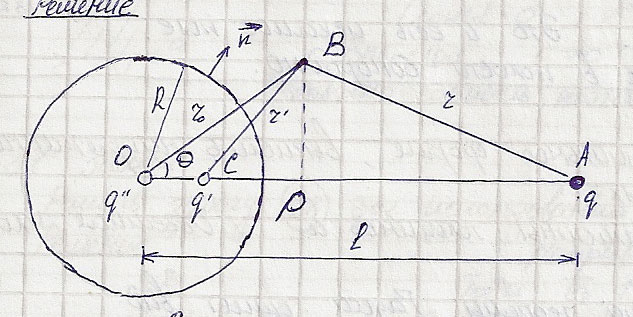 Решение
n
B
R
r₀
r'
r
O
Θ
C
A
q''
q'
D
q
l